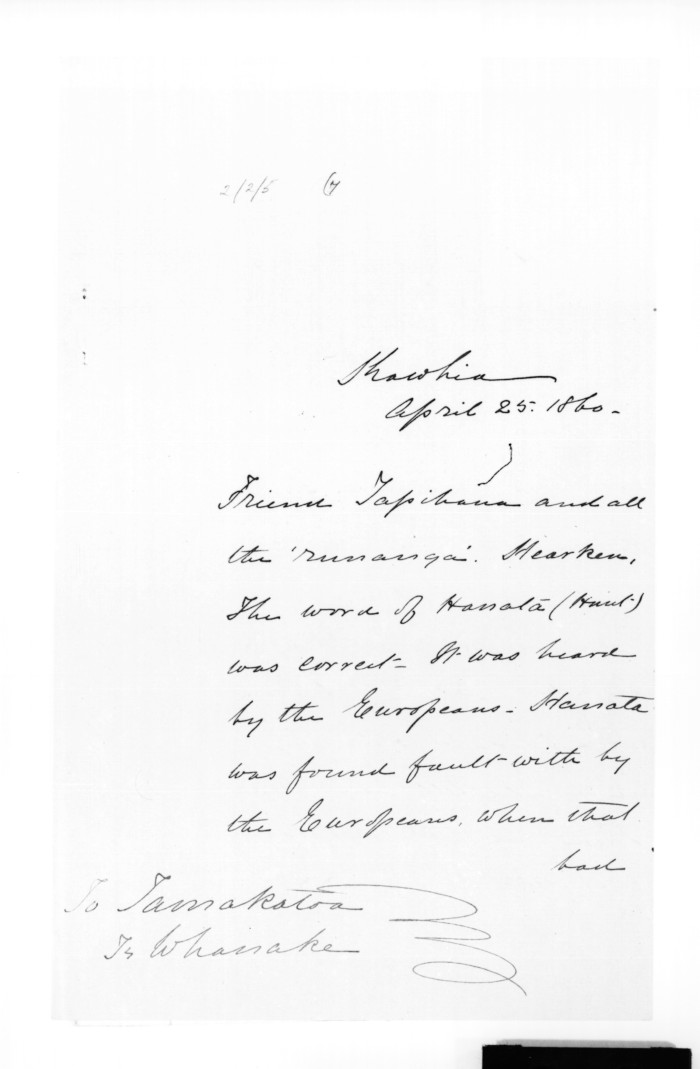 2/2/5 (7
Kawhia
April 25. 1860.
Friend Tapihana and all
the 'runanga'. Hearken,
The word of Hanata (Hunt)
was correct - It was heard
by the Europeans - Hanata
was found fault with by
the Europeans, when that
bad
To Tamakatoa
Te Whanake